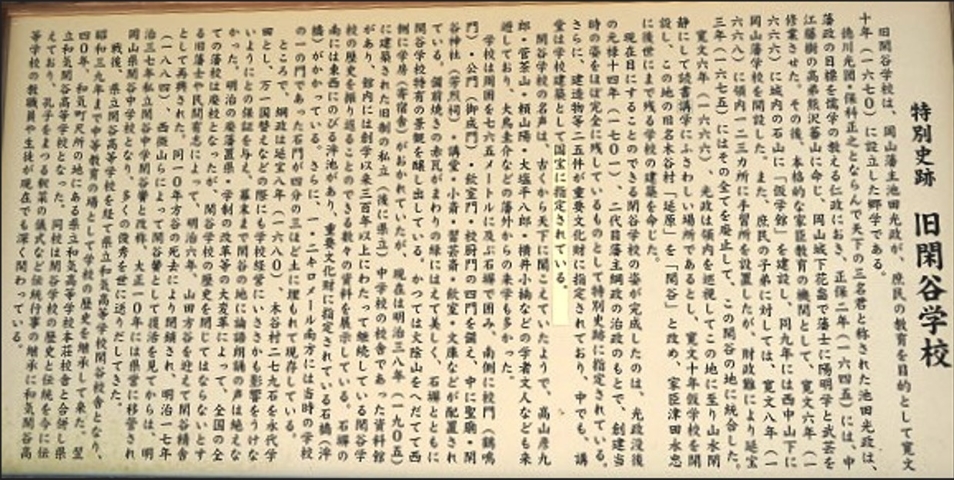 特別史跡 旧閑谷学校
旧閑谷学校は、岡山藩主池田光政が、庶民の教育を目的として寛文
十年(一六七〇)に設立した郷学である。
徳川光圀・保科正之とならんで天下の三名君と称された池田光政は、
藩政の目標を儒学の教える仁政におき、正保二年(一六四五)には、中
江藤樹の高弟熊沢蕃山に命じ、岡山城下花畠で藩士に陽明学と武芸を
修業させた。その後、本格的な家臣教育の機関として、寛文六年(一
六六六)に城内の石山に「仮学館」を建設し、同九年には西中山下に
岡山藩学校を開設した。また、庶民の子弟に対しては、寛文八年(一
六六八)に領内一二三カ所に手習所を設置したが、財政難により延宝
三年(一六七五)にはその全てを廃止して、この閑谷の地に統合した。
寛文六年(一六六六)、光政は領内を巡視してこの地に至り山水閑
静にして読書講学にふさわしい場所であるとし、寛文十年仮学校を開
設した。この地の旧名木谷村「延原」を「閑谷」と改め、家臣津田永忠
に後世にまで残る学校の建築を命じた。
現在目にすることのできる閑谷学校の姿が完成したのは、光政没後
の元禄十四年(一七〇一)、二代目藩主綱政の治政のことで、創建当
時の姿をほぼ完全に残しているものとして特別史跡に指定されている。
さらに、建造物等二五件が重要文化財に指定されており、中でも、講
堂は学校建築として国宝に指定されている。
閑谷学校の名声は、古くから天下に聞こえていたようで、高山彦九
郎・菅茶山・頼山陽・大塩平八郎・横井小楠などの学者文人なども来
遊しており、大鳥圭介などの藩外からの来学も多かった。
学校は周囲を七六五メートルに及ぶ石塀で囲み、南側に校門(鶴鳴
門)・公門(御成門)・飲室門・校厨門の四門を備え、中に聖廟・閑
谷神社(芳烈祠)・講堂・小斎・習芸斎・飲室・文庫などが配置され
ている。備前焼きの赤瓦がまわりの緑にはえて美しく、石塀とともに
閑谷学校特有の景観を醸し出している。かつては火除山をへだてて西
側に学房(寄宿舎)がおかれていたが、現在は明治三八年(一九〇五)
に建築された旧制の私立(後に県立)中学校の校舎であった資料館
があり、館内には創学以来三百年以上にわたって継続している閑谷学
校の歴史を振り返ることのできる数々の資料を展示している。石塀の
南には東西に延びる泮池があり、重要文化財に指定されている石橋(泮
橋)がかかっている。さらに、一・二キロメートル南方には当時の学校
の一門であった石門が四分の三ほど土に埋もれて現存している。
ところで、綱政は延宝八年(一六八〇)、木谷村二七九石を永代学
田とし、万一国替えなどの際にも学校経営にいささかも影響をうけな
いよう保証を与え、幕末まで閑谷の地に論語朗誦の声は絶えな
かった。明治の廃藩置県・学制の改革等の大変革によって、全国の全
ての藩校は廃校となったが、閑谷学校の歴史を閉じてはならないとす
る旧藩士や民間有志によって、明治六年、山田方谷を迎えて閑谷精舎
として再興された。同一〇年方谷の死去により閉鎖され、明治一七年
(一八八四)、西微山らによって閑谷黌として復活を見てからは、明
治三七年私立閑谷中学閑谷黌と改称、大正一〇年には県営に移管され
岡山県閑谷中学校となり、多くの俊秀を世に送りだしてきた。
戦後、県立閑谷高等学校を経て県立和気高等学校閑谷校舎となり、
昭和三九年まで中等教育の場として学校の歴史を継承して来た。翌
四〇年、和気町尺所の地にある県立和気高等学校本荘校舎と合併し県
立和気閑谷高等学校となった。同校は閑谷学校の歴史と伝統を今に伝
えており、孔子をまつる釈菜の儀式など伝統行事の継承に和気閑谷高
等学校の教職員や生徒が現在でも深く関わっている。